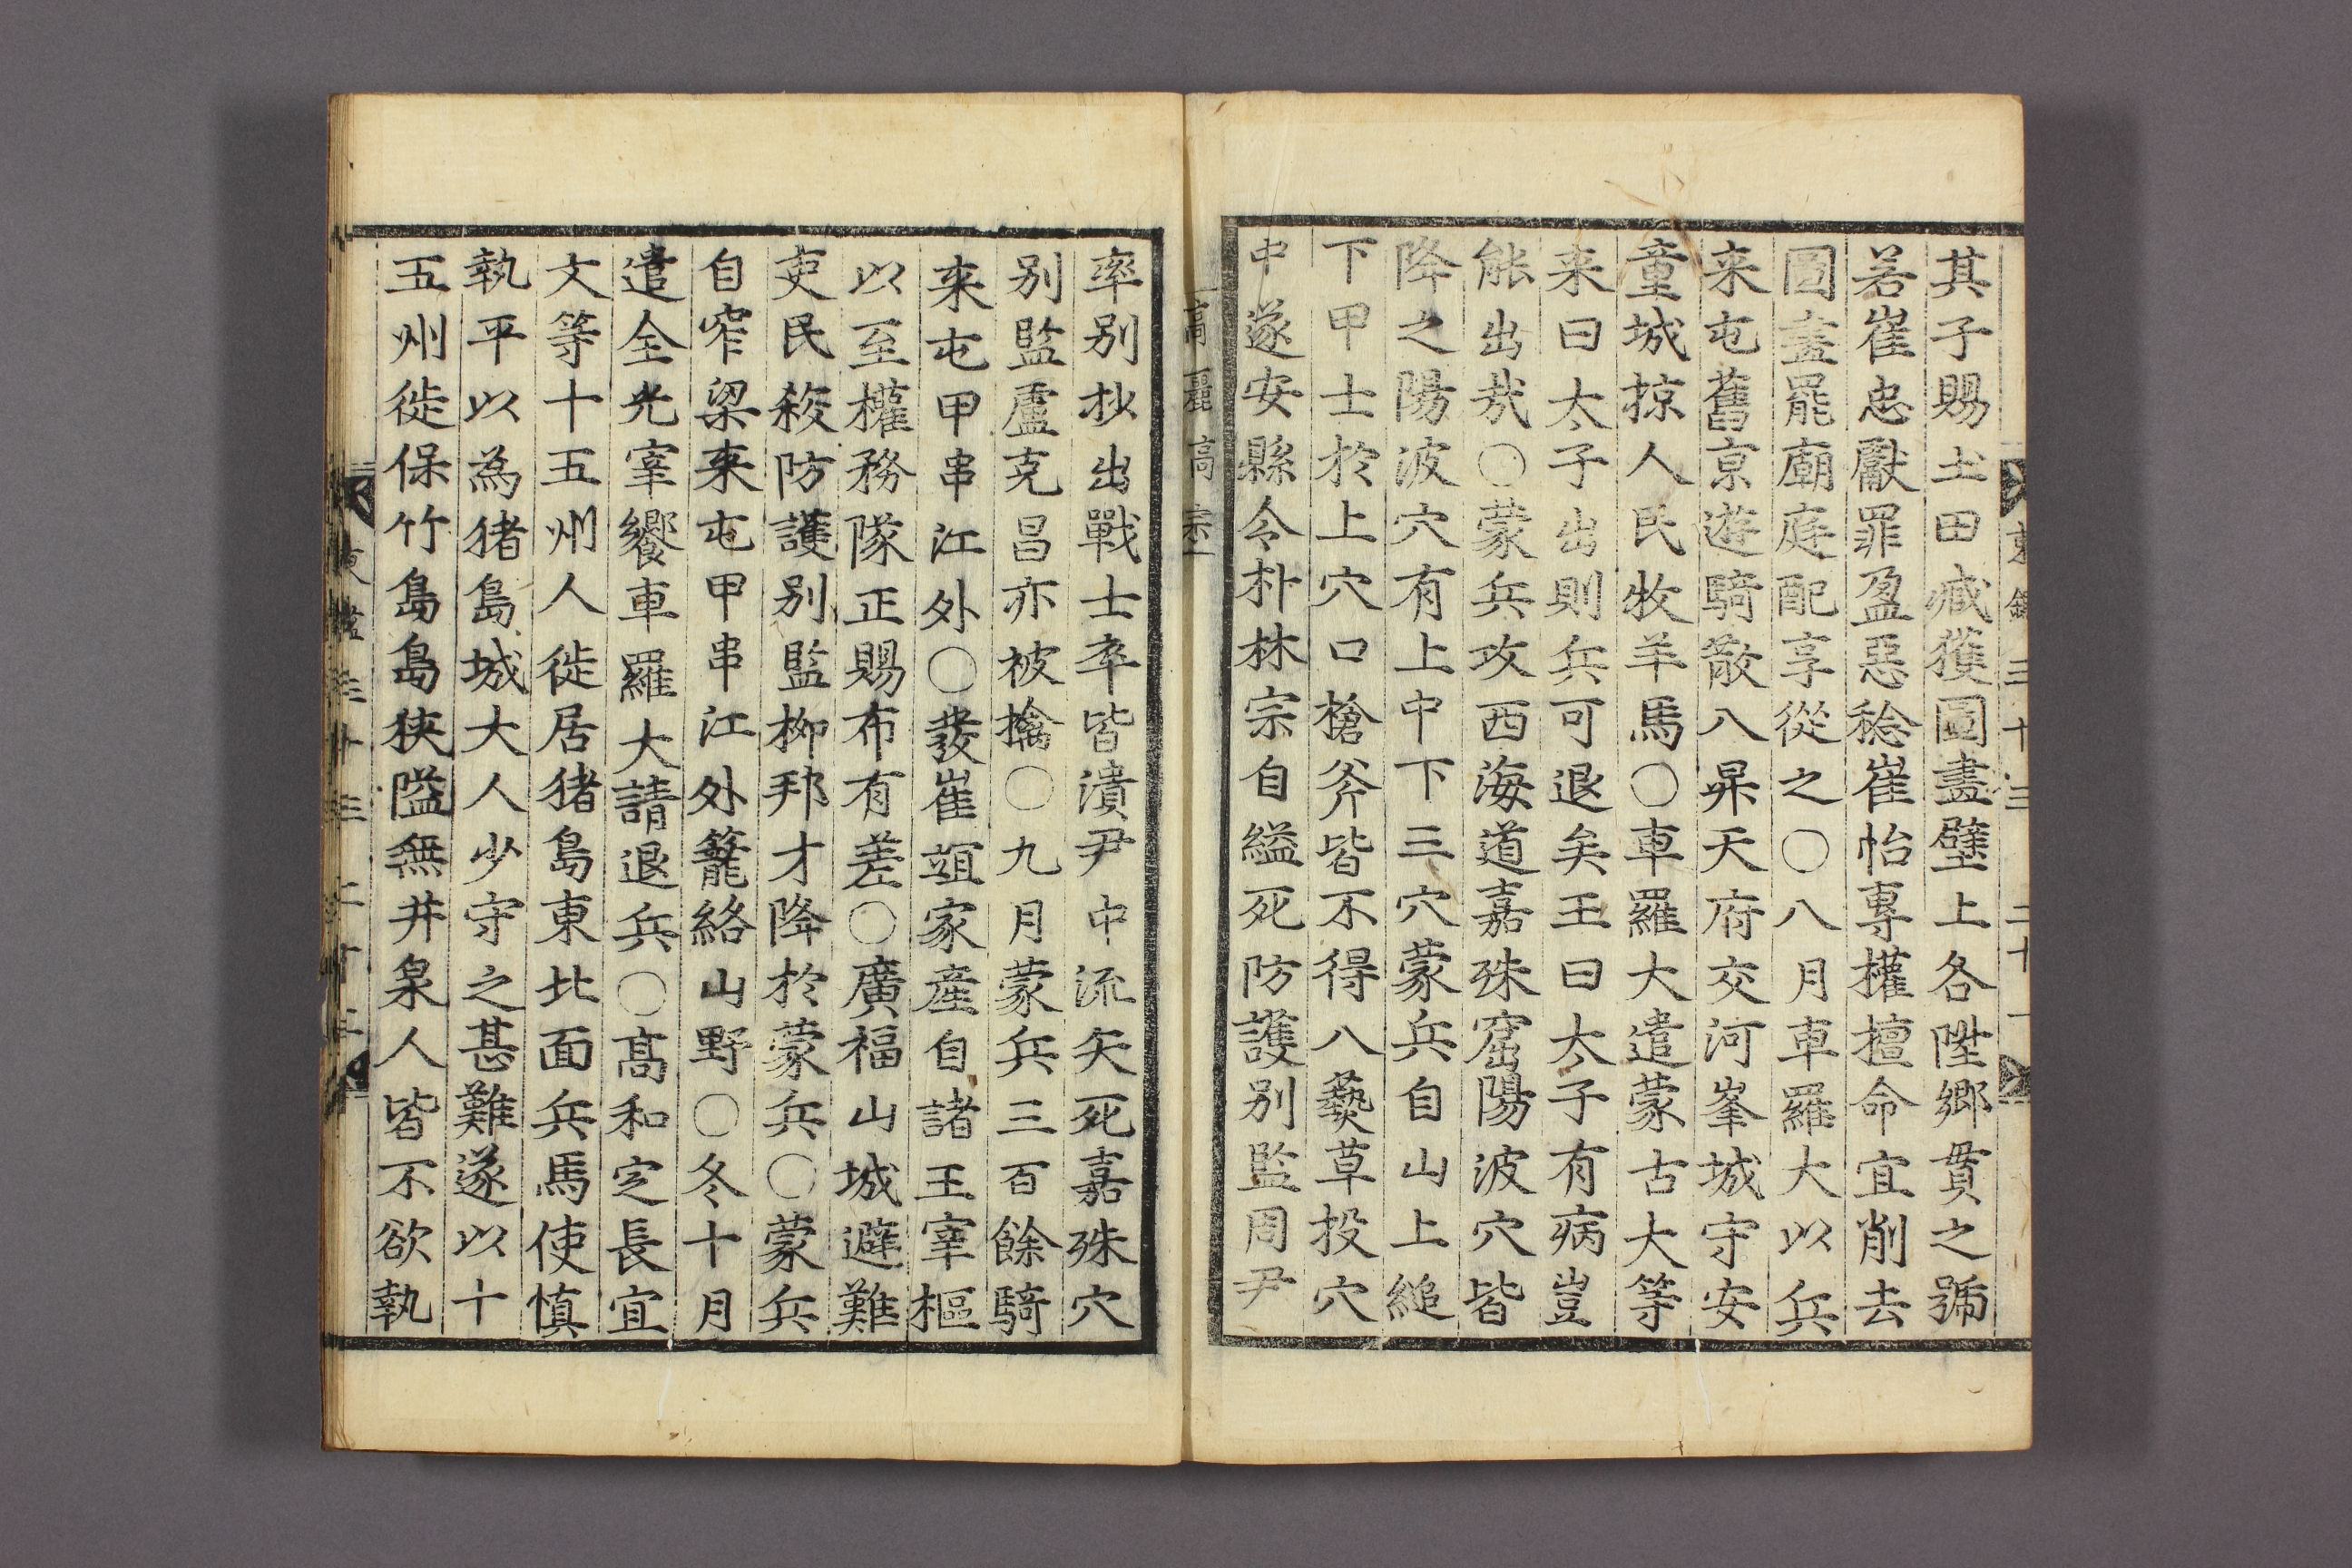 其子賜土田臧獲圖畫壁上各陞鄕貫之號
若崔忠獻罪盈惡稔崔怡專權擅命宜削去
圖畫罷廟庭配享從之○八月車羅大以兵
来屯舊京遊騎散入昇天府交河峯城守安
童城掠人民牧羊馬○車羅大遣蒙古大等
来曰太子出則兵可退矣王曰太子有病豈
能出㢤○蒙兵攻西海道嘉殊窟陽波穴皆
降之陽波穴有上中下三穴蒙兵自山上縋
下甲士於上穴口槍斧皆不得入爇草投穴
中遂安縣令朴林宗自縊死防護別監周尹
高麗高宗
率別抄出戰士卒皆潰尹中流矢死嘉殊穴
別監盧克昌亦被擒○九月蒙兵三百餘騎
来屯甲串江外○發崔竩家產自諸王宰樞
以至權務隊正賜布有差○廣福山城避難
吏民殺防護別監柳邦才降於蒙兵○蒙兵
自窄梁来屯甲串江外籠絡山野○冬十月
遣全光宰饗車羅大請退兵○高和定長宜
文等十五州人徙居猪島東北面兵馬使愼
執平以爲猪島城大人少守之甚難遂以十
五州徙保竹島島狹隘無井泉人皆不欲執
東鑑三十三 二十二